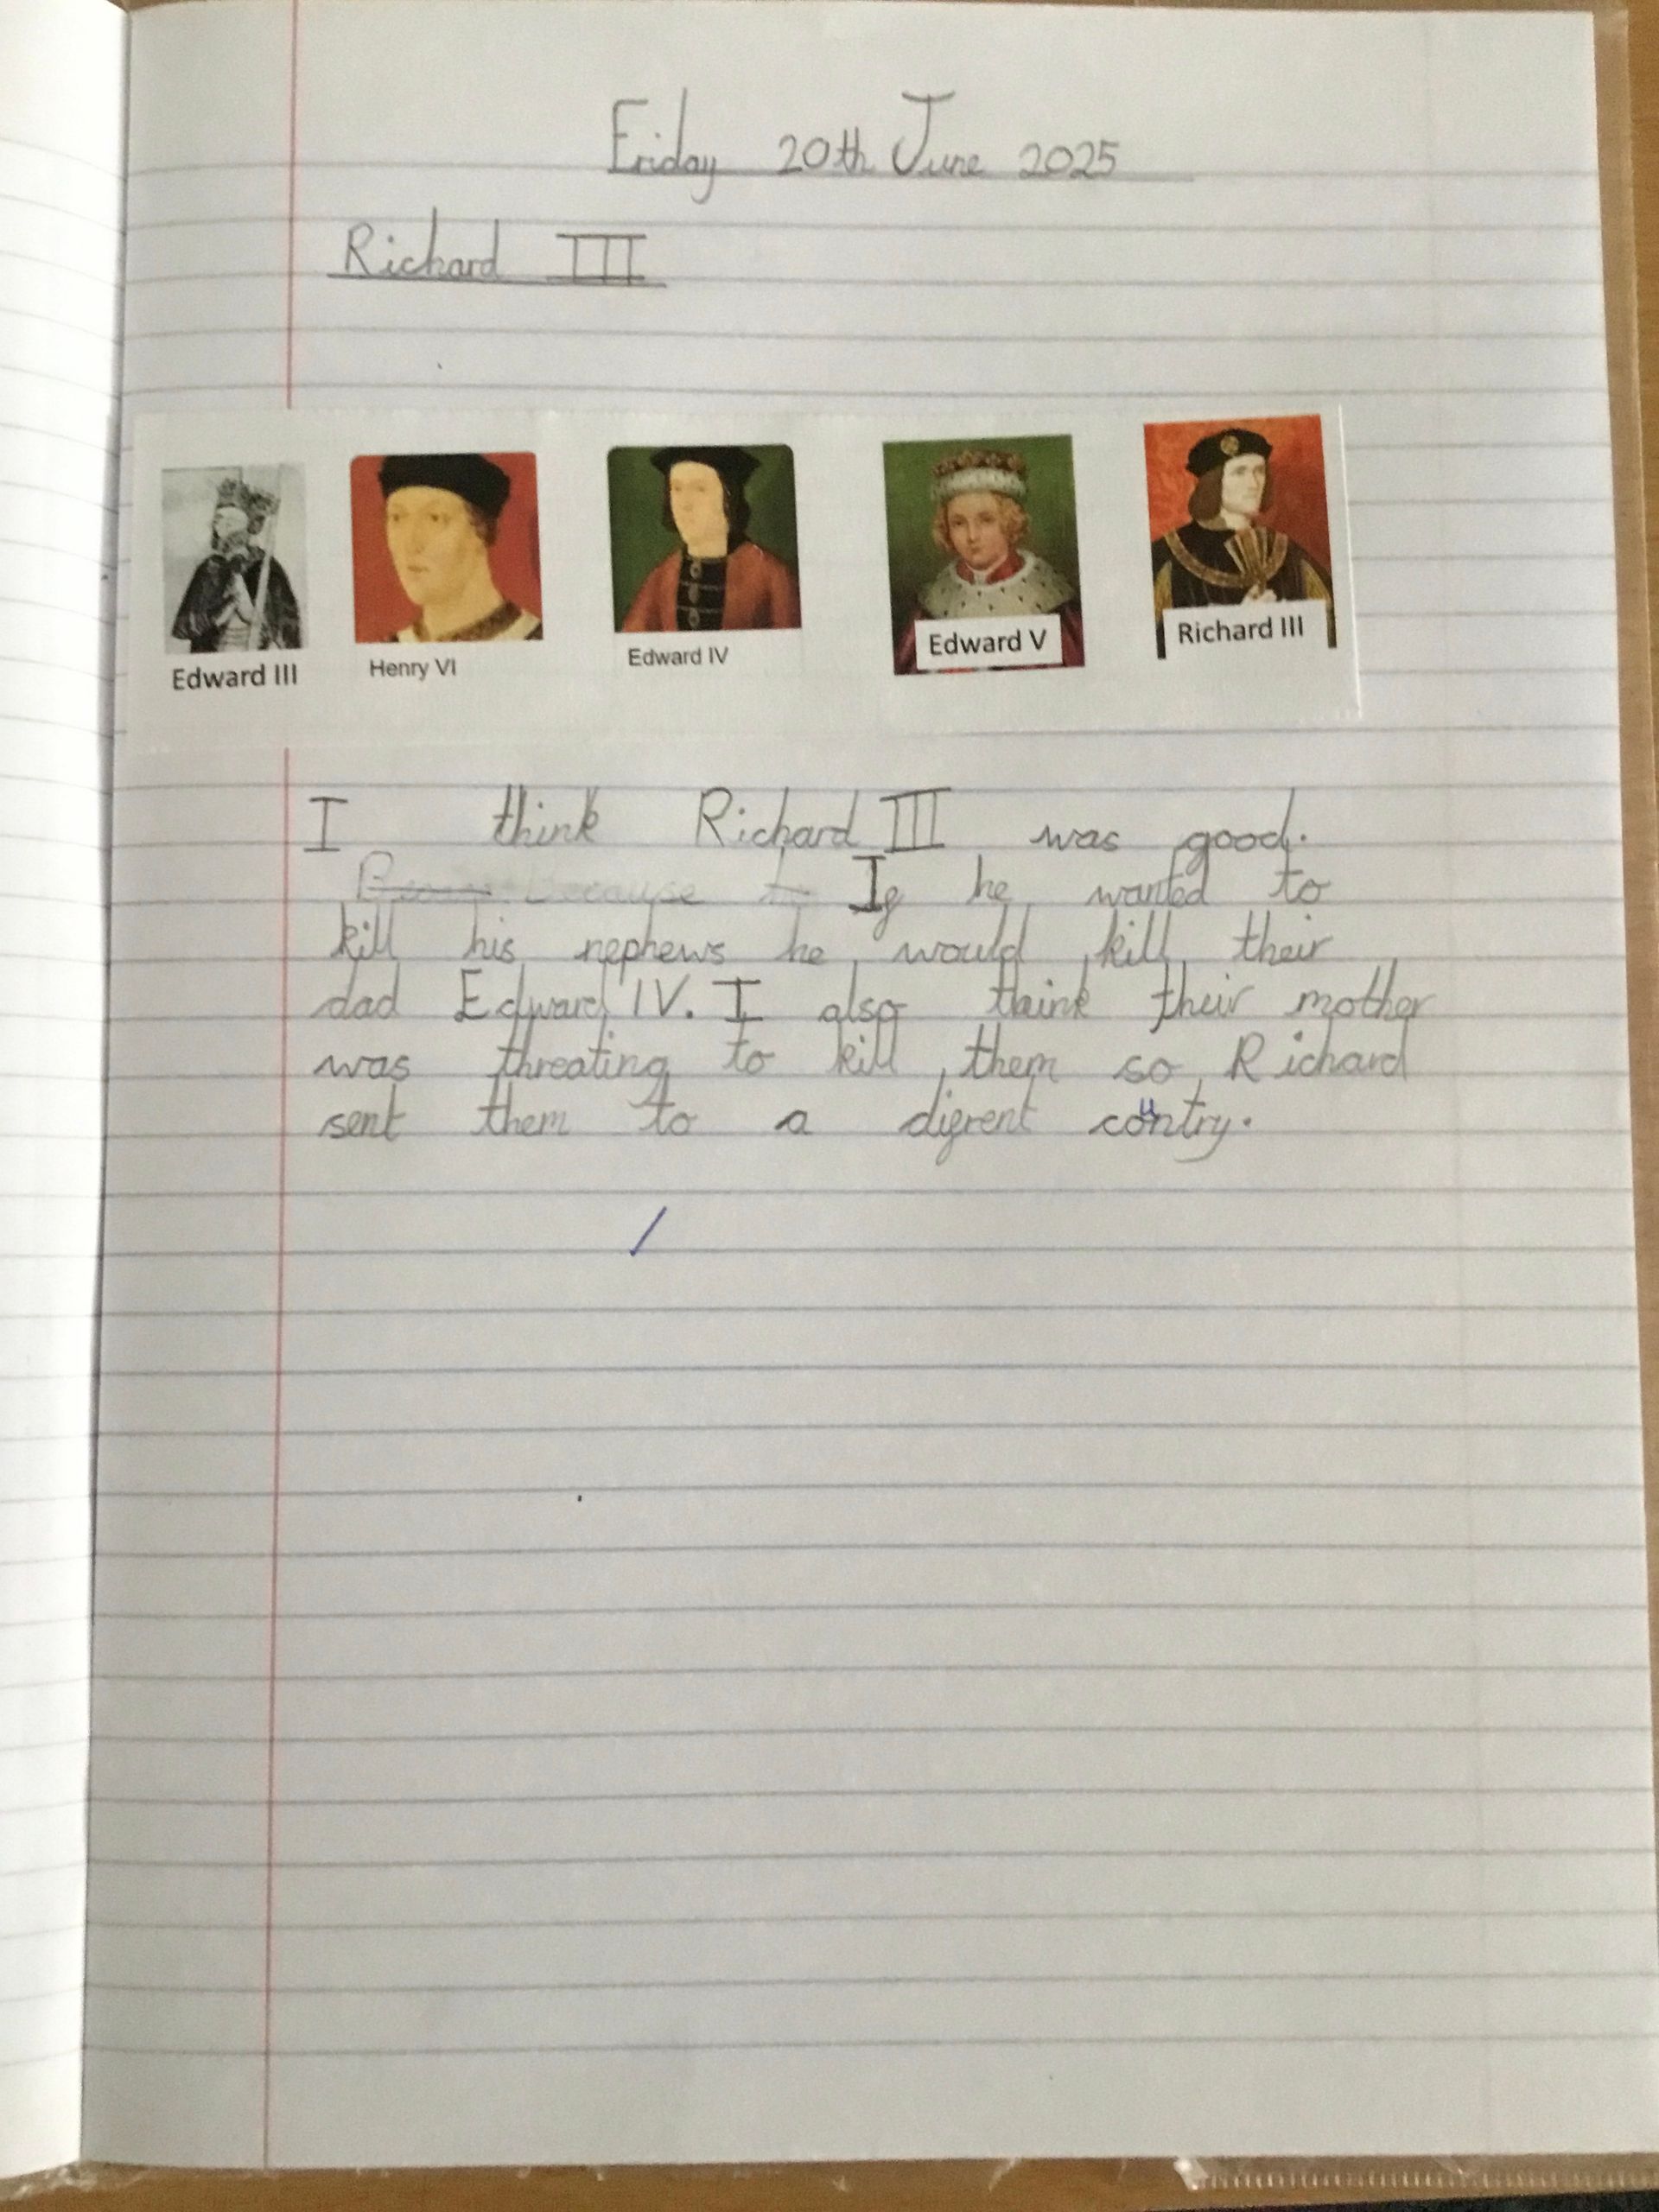 Friday 20th June 2025
Richard III
Edward III Henry VI Edward IV Edward V Richard III
I think Richard III was good.
because If he wanted to
kill his nephews he would kill their
dad Edward IV. I also think their mother
was threating to kill them so Richard
sent them to a difrent country.